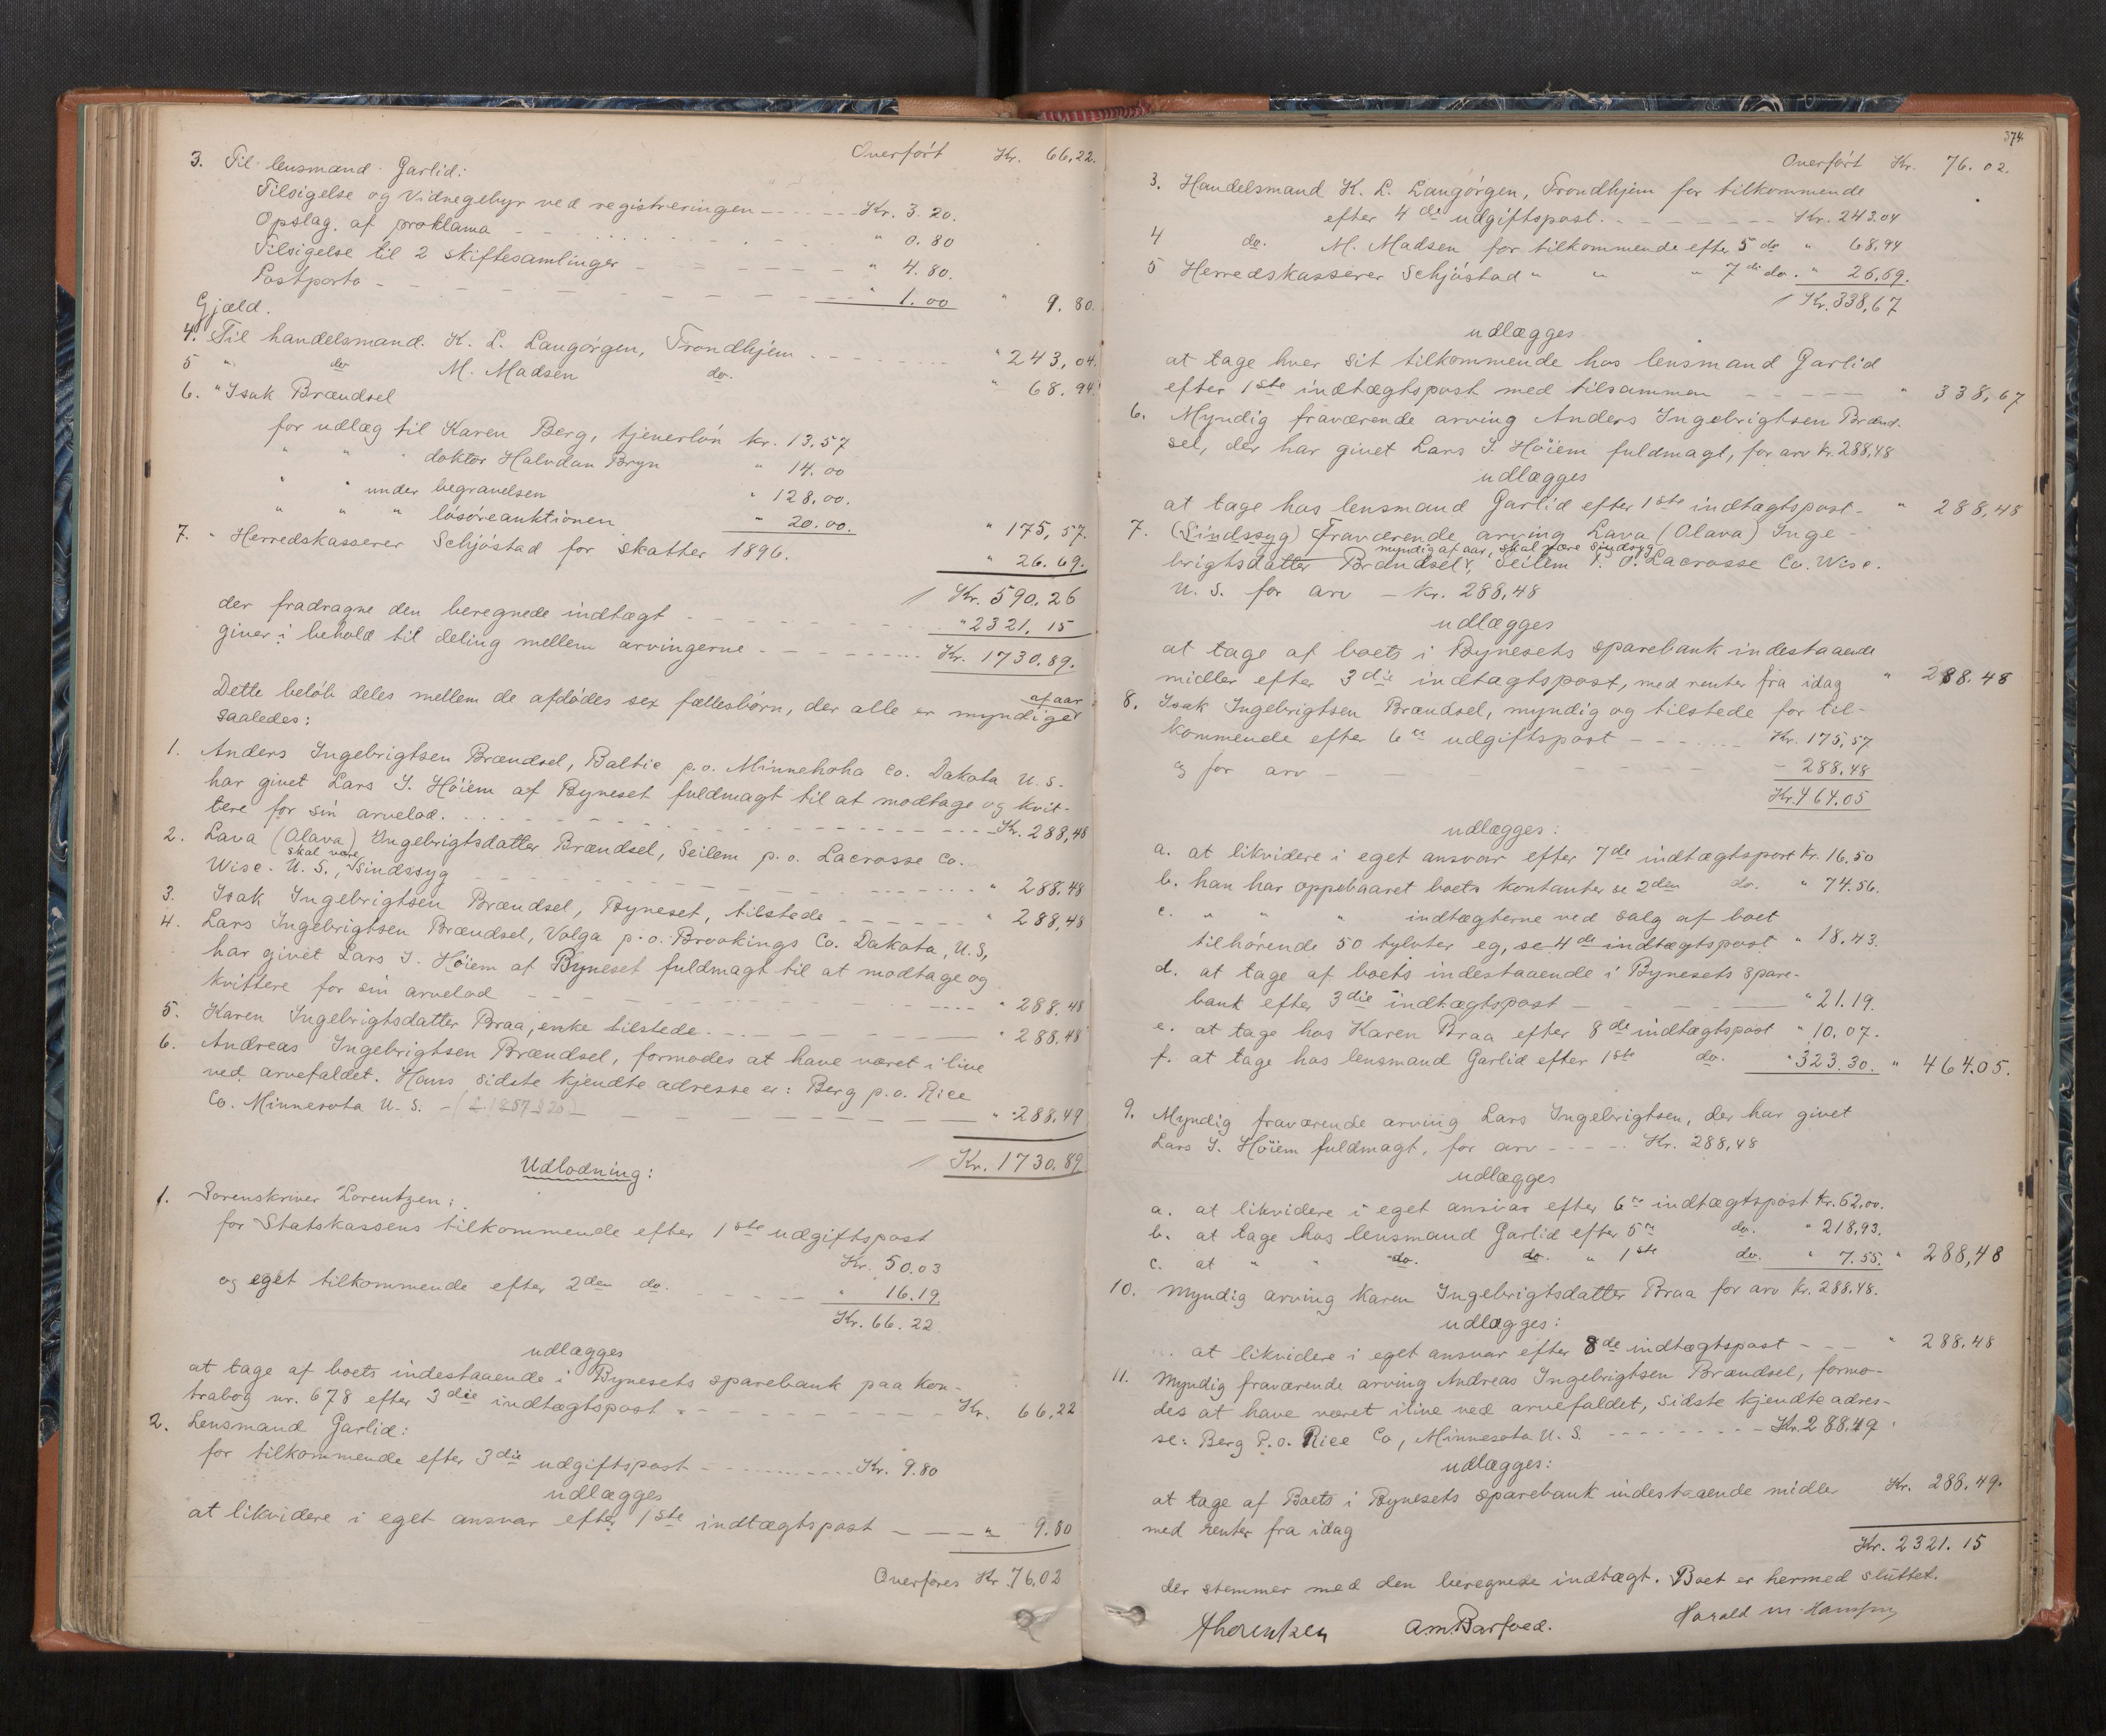 Overført Kr. 66,22.
3. Til lensmand Garlid:
Tilsigelse og Vidnegebyr ved registreringen - - - Kr. 3.20.
Opslag af proklama - - - " 0.80
Tilsigelse til 2 skiftesamlinger - - - " 4.80.
Postporto - - - " 1.00 " 9.80.
Gjæld.
4. Til handelsmand K. L. Langørgen, Trondhjem - - - " 243,04.
5 " do M. Madsen do. " 68.94.
6. " Isak Brændsel
for udlæg til Karen Berg, tjenerløn kr. 13.57
" " " doktor Halvdan Bryn " 14.00
" " under begravelsen " 128,00.
" " " løsøreauktionen " 20.00. " 175,57.
7. " Herredskasserer Schjøstad for skatter 1896. " 26.69.
Kr. 590.26
der fradragne den beregnede indtægt - - - " 2321.15
giver i behold til deling mellem arvingerne - - - Kr. 1730.89.
Dette beløb deles mellem de afdødes sex fællesbørn, der alle er myndige af aar
saaledes:
1. Anders Ingebrigtsen Brændsel, Baltic p.o. Minnehaha Co. Dakota U.S.
har givet Lars J. Høiem af Byneset fuldmagt til at modtage og kvit-
tere for sin arvelod. - - - Kr. 288,48
2. Lava (Olava) Ingebrigtsdatter Brændsel, Seilem p.o. Lacrosse Co.
Wisc. U.S., skal være sindssyg - - - " 288.48
3. Isak Ingebrigtsen Brændsel, Byneset, tilstede - - - " 288,48
4. Lars Ingebrigtsen Brændsel, Volga p.o. Brookings Co. Dakota, U.S,
har givet Lars J. Høiem af Byneset fuldmagt til at modtage og
kvittere for sin arvelod - - - " 288.48
5. Karen Ingebrigtsdatter Braa, enke tilstede. - - - " 288.48
6. Andreas Ingebrigtsen Brændsel, formodes at have været i live
ved arvefaldet. Hans sidste kjendte adresse er: Berg p.o. Rice
Co. Minnesota U.S. - - - " 288,49
Kr. 1730.89
Udlodning:
1. Sorenskriver Lorentzen:
for Statskassens tilkommende efter 1ste udgiftspost
Kr. 50.03
og eget tilkommende efter 2den do. - - - " 16.19
Kr. 66.22
udlægges
at tage af boets indestaaende i Bynesets sparebank paa kon-
trabog nr. 678 efter 3die indtægtspost - - - Kr. 66,22
2. Lensmand Garlid:
for tilkommende efter 3die udgiftspost - - - Kr. 9.80
udlægges
at likvidere i eget ansvar efter 1ste indtægtspost - - - " 9.80
Overføres Kr. 76.02
374
Overført Kr. 76.02.
3. Handelsmand K. L. Langørgen, Trondhjem for tilkommende
efter 4de udgiftspost. - - - Kr. 243.04
4 do. M. Madsen for tilkommende efter 5 do " 68,94
5 Herredskasserer Schjøstad " " " 7de do. " 26,69.
Kr. 338,67
udlægges
at tage hver sit tilkommende hos lensmand Garlid
efter 1ste indtægtspost med tilsammen - - - " 338,67
6. Myndig fraværende arving Anders Ingebrigtsen Brænd-
sel, der har givet Lars J. Høiem fuldmagt, for arv kr. 288,48
udlægges
at tage hos lensmand Garlid efter 1ste indtægtspost - " 288,48
7. (Sindssyg) Fraværende arving Lava (Olava) Inge-
myndig af aar, skal være sindsyg
brigtsdatter Brændsel, Seilem P.O. Lacrosse Co. Wisc.
U.S. for arv - Kr. 288,48
udlægges
at tage af boets i Bynesets sparebank indestaaende
midler efter 3die indtægtspost, med renter fra idag " 288.48
8. Isak Ingebrigtsen Brændsel, myndig og tilstede for til-
kommende efter 6te udgiftspost - - - Kr. 175,57
og for arv - - - - 288,48
Kr. 464.05
udlægges:
a. at likvidere i eget ansvar efter 7de indtægtspost Kr. 16.50
b. han har oppebaaret boets kontanter se 2den do. " 74.56.
c. " " " indtægterne ved salg af boet
tilhørende 50 tylvter eg, se 4de indtægtspost " 18.43.
d. at tage af boets indestaaende i Bynesets spare-
bank efter 3die indtægtspost - - - " 21.19.
e. at tage hos Karen Braa efter 8de indtægtspost " 10.07.
f. at tage hos lensmand Garlid efter 1ste do. " 323.30. " 464.05.
9. Myndig fraværende arving Lars Ingebrigtsen, der har givet
Lars J. Høiem fuldmagt, for arv - - - Kr. 288,48
udlægges
a. at likvidere i eget ansvar efter 6te indtægtspost Kr. 62.00.
b. at tage hos lensmand Garlid efter 5te do. " 218,93.
c. at " " do. do. " 1ste do. " 7.55. " 288,48
10. Myndig arving Karen Ingebrigtsdatter Braa for arv Kr. 288.48.
udlægges:
at likvidere i eget ansvar efter 8de indtægtspost - - - " 288.48
11. Myndig fraværende arving Andreas Ingebrigtsen Brændsel, formo-
des at have været ilive ved arvefaldet, sidste kjendte adres-
se: Berg P.o. Rice Co, Minnesota U.S. - - - Kr. 288.49
udlægges:
at tage af Boets i Bynesets sparebank indestaaende midler Kr. 288.49.
med renter fra idag
Kr. 2321.15
der stemmer med den beregnede indtægt. Boet er hermed sluttet.
A Lorentzen A.M. Barfoed. Harald M. Hansen